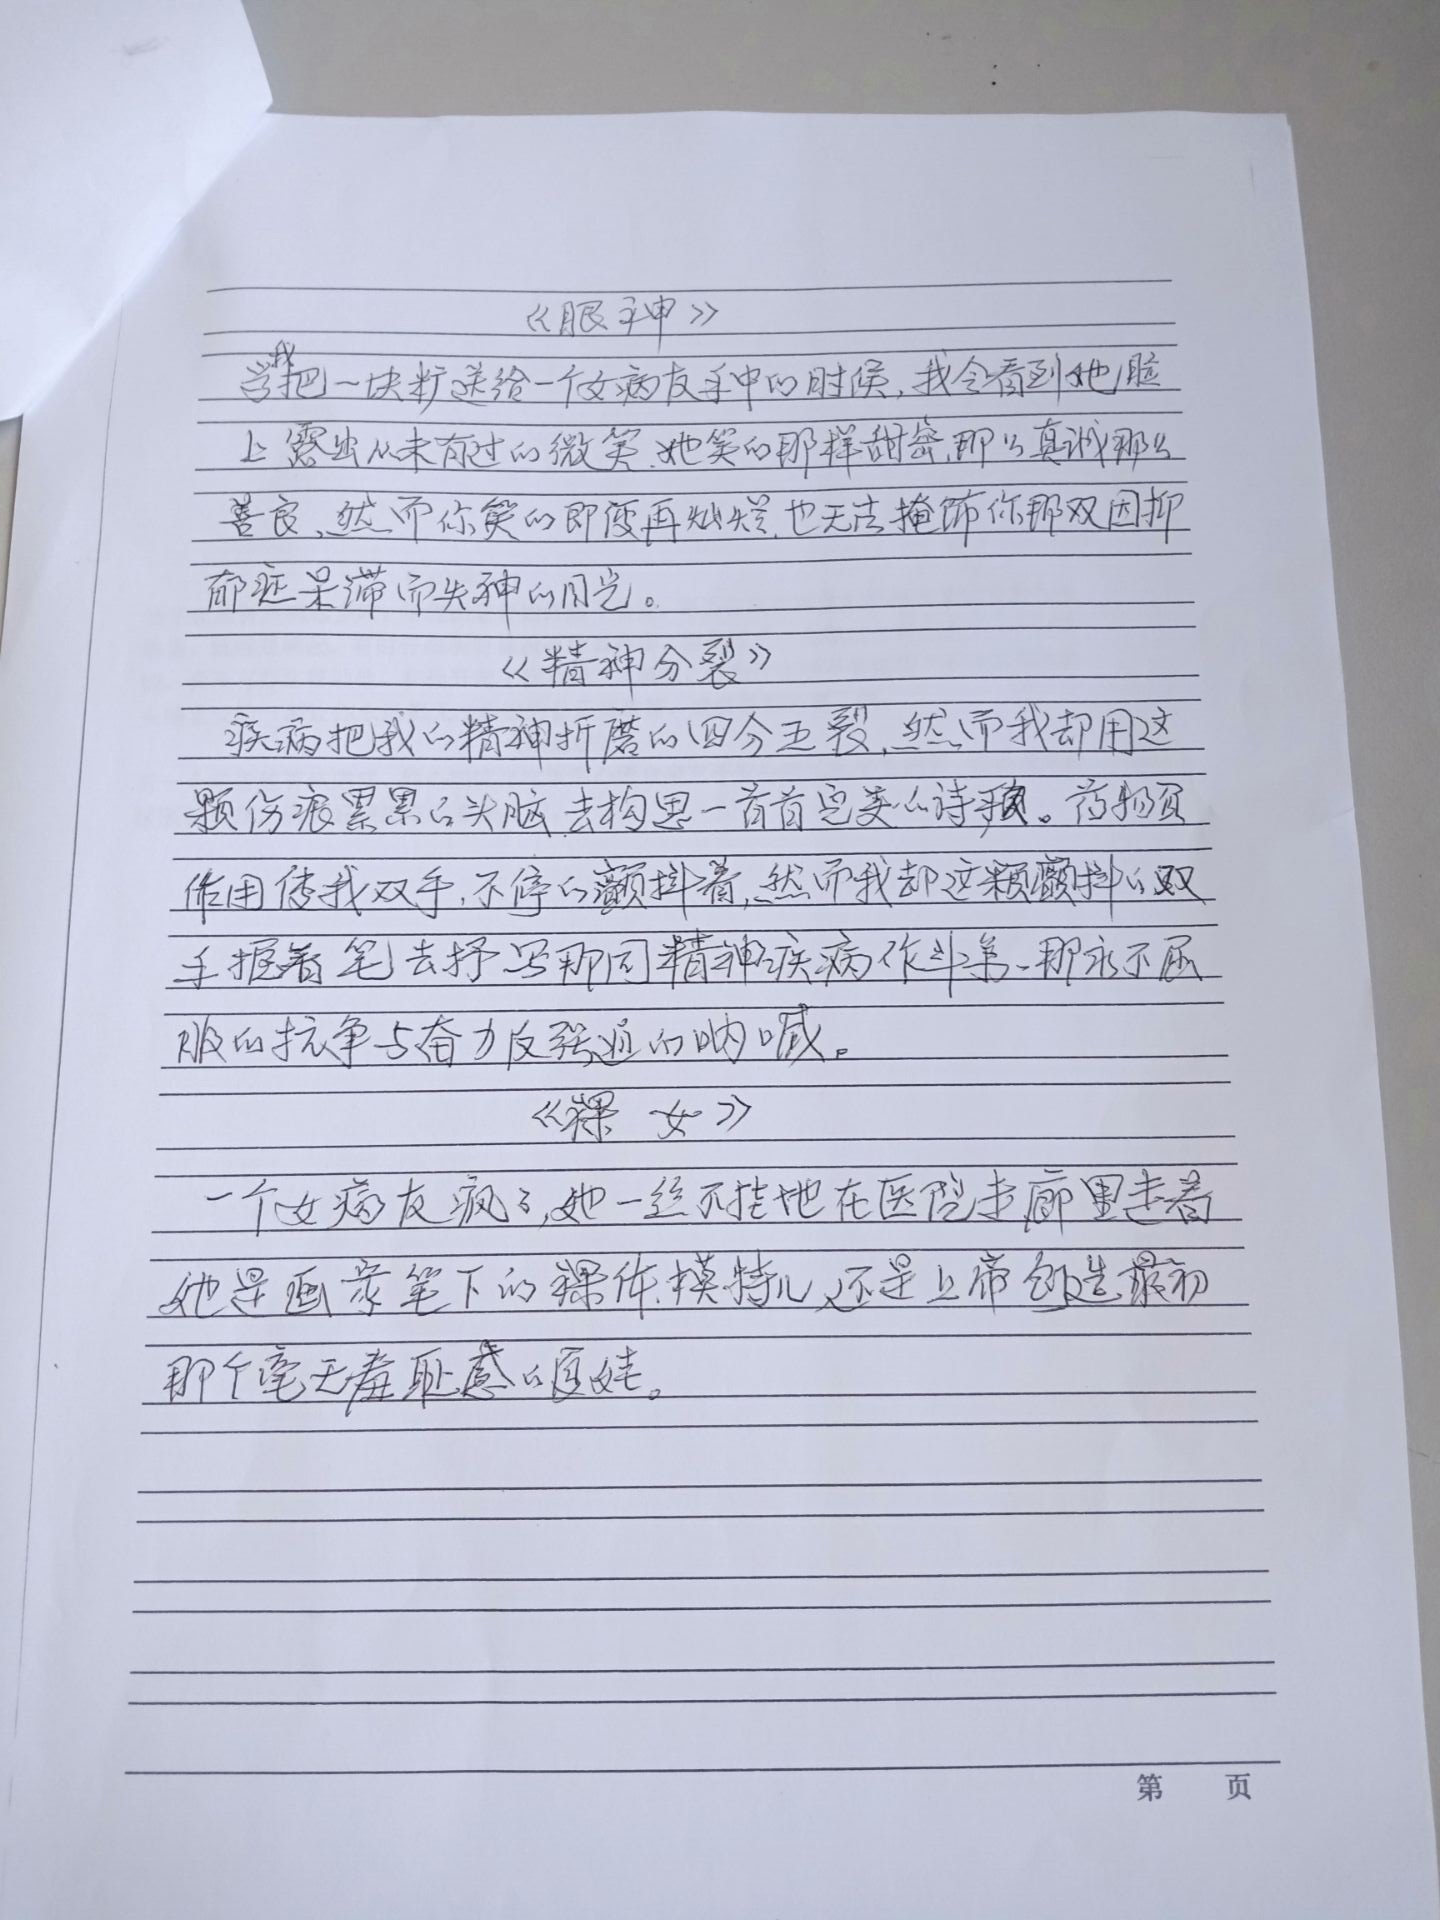 《眼神》
当我把一块糖送给一个女病友手中的时候，我会看到她脸
上露出从未有过的微笑、她笑的那样甜蜜、那么真诚那么
善良、然而你笑的即使再灿烂、也无法掩饰你那双因抑
郁症呆滞而失神的目光。
《精神分裂》
疾病把我的精神折磨的四分五裂、然而我却用这
颗伤痕累累的头脑、去构思一首首完美的诗歌。药物负
作用使我双手、不停的颤抖着、然而我却这颗颤抖的双
手握着笔去抒写那同精神疾病作斗争、那永不屈
服的抗争与奋力反强迫的呐喊。
《裸女》
一个女病友疯了，她一丝不挂地在医院走廊里走着
她是画家笔下的裸体、模特儿、还是上帝创造最初
那个毫无羞耻感的夏娃。
第 页